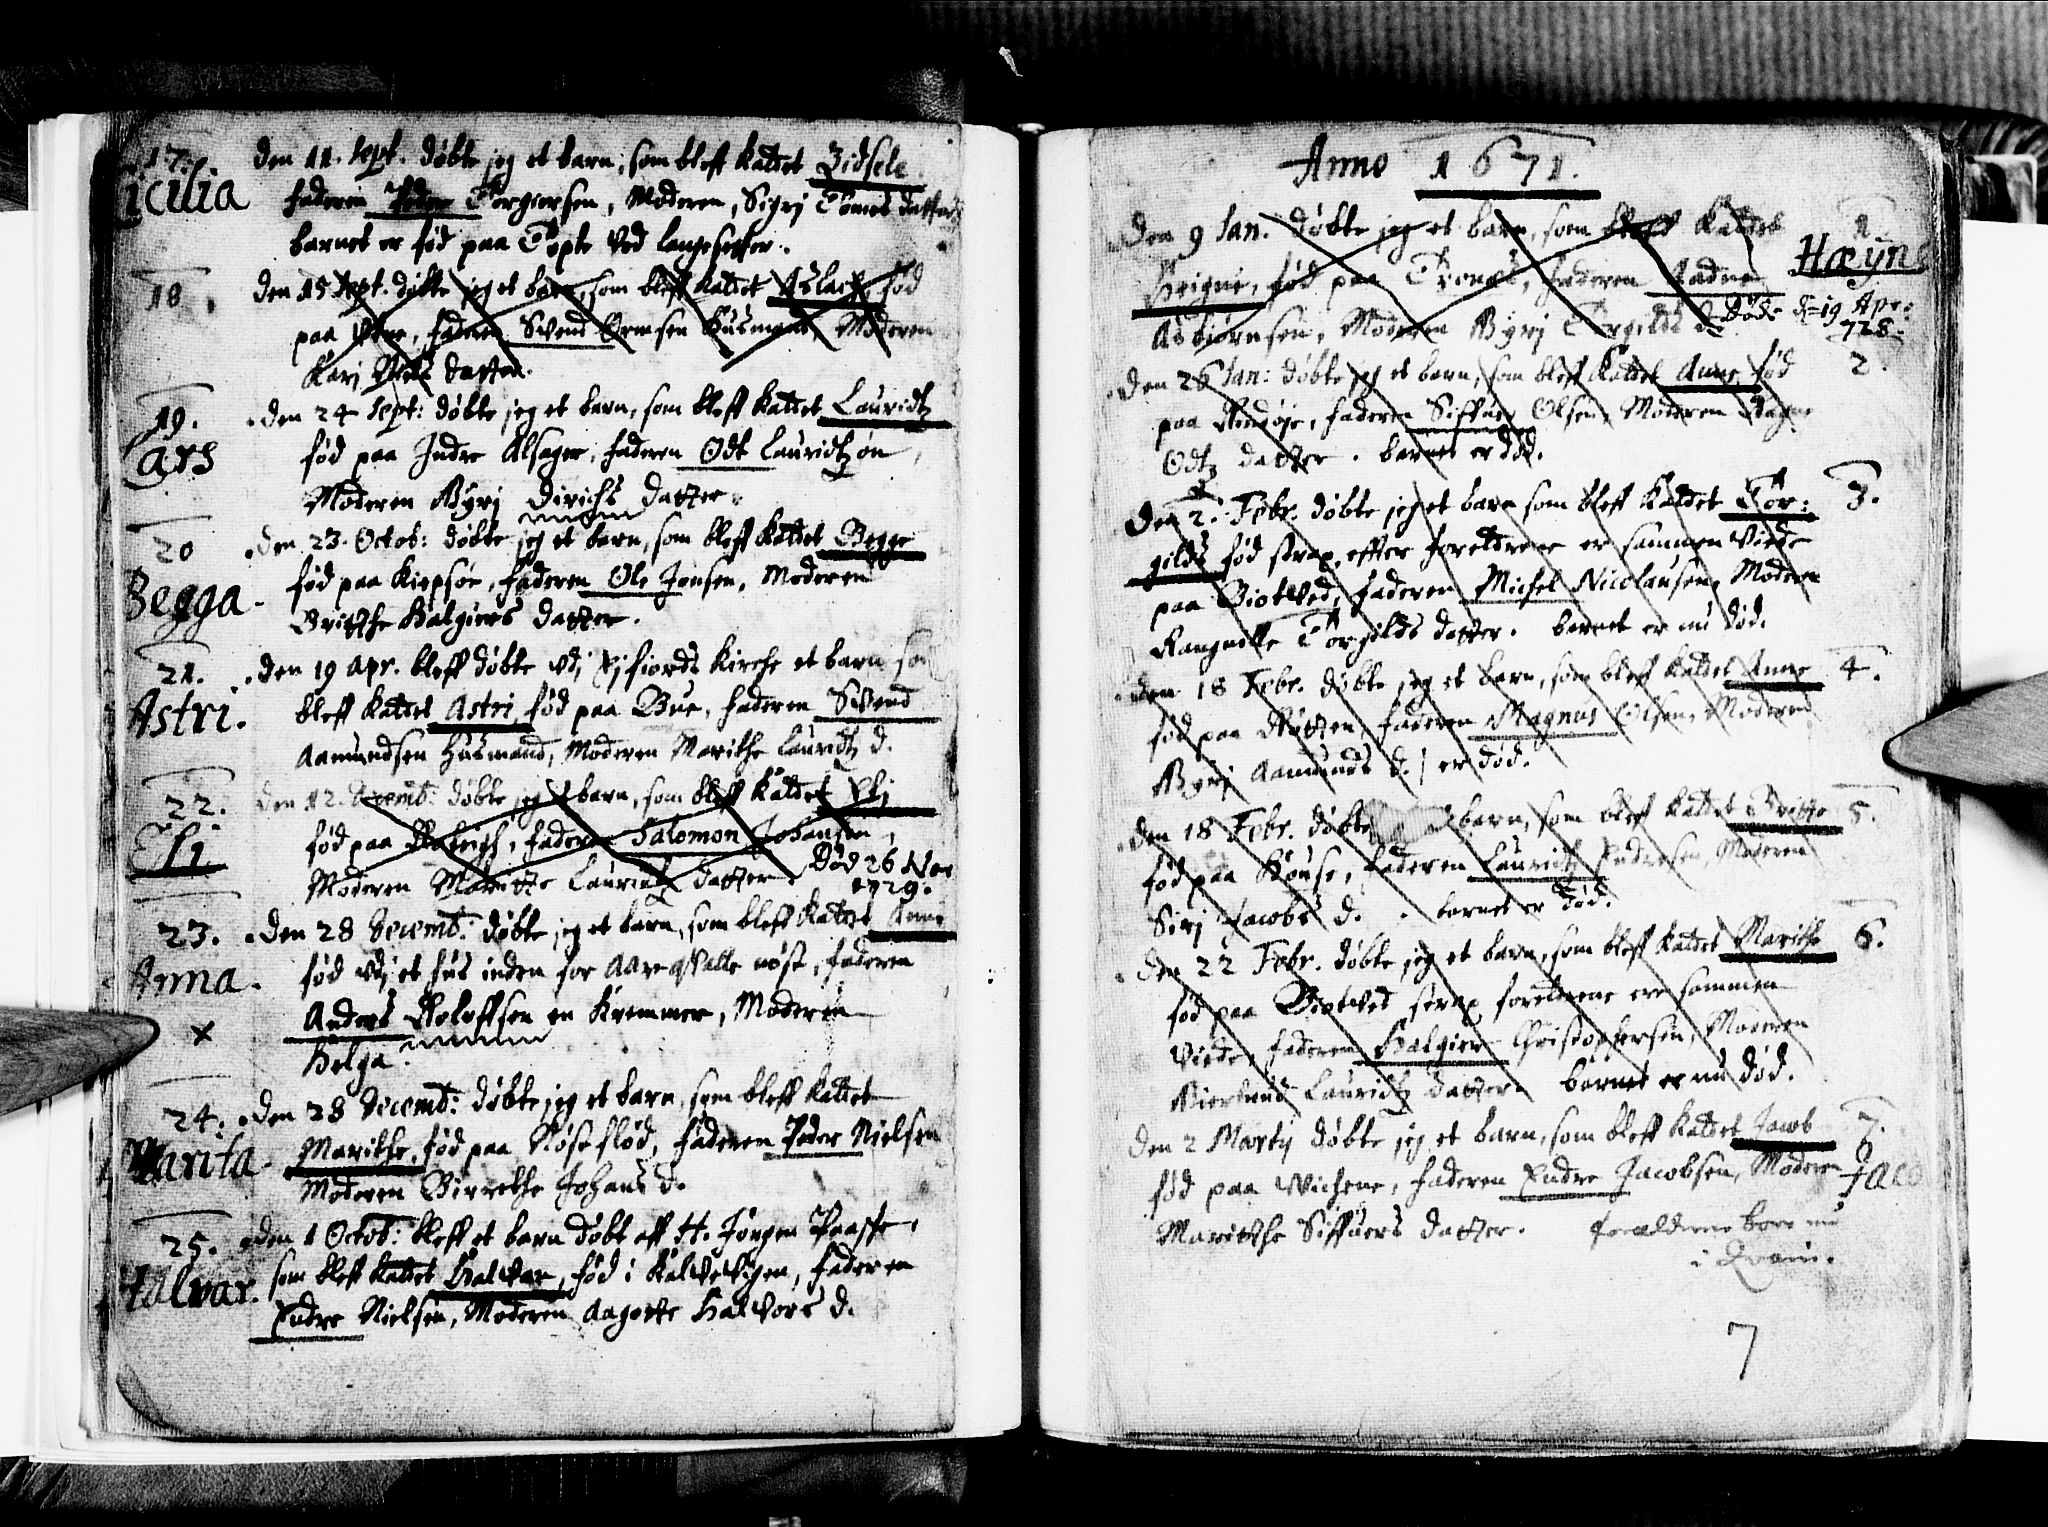 17.
Cicilia
Den 11. Sept. døbte jeg et barn, som bleff kaldet Zidsele
faderen Peder Torgiersen, Moderen, Sigrj Tomes datter
barnet er fød paa Topte ved langesetter.
18.
Den 15 Sept. døbte jeg et barn, som bleff kaldet Aslach, fød
paa faderen Svend Ormsen Husmand, Moderen
Karj Nels datter.
19.
Lars
Den 24 Sept: døbte jeg et barn, som bleff kaldet Lauridtz
fød paa Indre Alsager, faderen Odt Lauridtzøn,
Moderen Byrj Dirichs datter.
20
Begga.
Den 23. Octob: døbte jeg et barn, som bleff kaldet Begge
fød paa Kiepsøe, faderen Ole Jonsen, Moderen
Britthe Halgiers datter.
21.
Astri.
Den 19 Apr. bleff døbte vdj Eifiords Kirche et barn som
bleff kaldet Astri, fød paa Bue, faderen Svend
Aamundsen Husmand, Moderen Marithe Lauridtz d.
22.
Eli
Den 12. Decemb: døbte jeg et barn, som bleff kaldet Elj
fød paa faderen Salomon Johansen,
Moderen Maritte Lauridtz datter. Død 26 Nov
1729.
23.
Anna.
Den 28 Decemb: døbte jeg et barn, som bleff kaldet Anne
fød vdj et hus inden for Aaregvalle nøst, faderen
Anders Roloffsen en Kremmer, Moderen
x
Helga.
24.
Marita
Den 28 Decemb: døbte jeg et barn, som bleff kaldet
Marithe, fød paa Nøsteflød, faderen Peder Nielsen
Moderen Birrethe Johans d.
25.
Halvar.
Den 1 Octob: bleff et barn døbt aff H. Jørgen Paaske,
som bleff kaldet Halvar, fød i Kalvevigen, faderen
Endre Nielsen, Moderen Aagotte Halvors d.
Anno 1671.
1.
Hæyne
Den 9 Jan. døbte jeg et barn, som bleff kaldet
Heigne, fød paa Tronæs, faderen Aadne
Asbiørnsen, Moderen Byrj Torgilds d. Døde d= 19 Apr:
728.
2.
Den 26 Jan: døbte jeg et barn, som bleff kaldet Anne fød
paa faderen Siffuer Olsen, Moderen Ragne
Odtz datter. barnet er død.
3.
Den 2. Febr. døbte jeg et barn som bleff kaldet Tor:
gilds fød strax effter foreldrene er sammen viede
paa Diotved, faderen Michel Nicolausen, Moderen
Rangnelle Torgilds datter. barnet er nu død.
4.
Den 18 Febr. døbte jeg et barn, som bleff kaldet Anne
fød paa faderen Magnus Olsen, Moderen
Byrj Aamunds d. / er død.
5.
Den 18 Febr. døbte barn, som bleff kaldet Britte
fød paa House, faderen Lauridtz Endresen, Moderen
Sirj Jacobs d. barnet er død.
6.
Den 22 Febr. døbte jeg et barn, som bleff kaldet Marithe
fød paa Diotved strax foreldrene ere sammen
viede, faderen Halgier Christophersen, Moderen
Lauridtz datter. barnet er nu død.
7.
Jaco
Den 2 Martij døbte jeg et barn, som bleff kaldet Jacob
fød paa Vichene, faderen Endre Jacobsen, Moderen
Maritthe Siffuers datter. foraldrene boer nu
i Qvam.
7